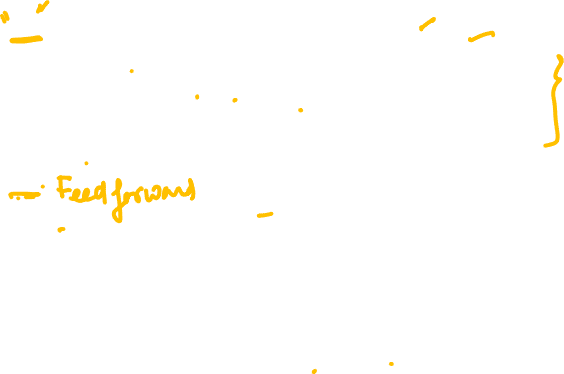 – Feedforward